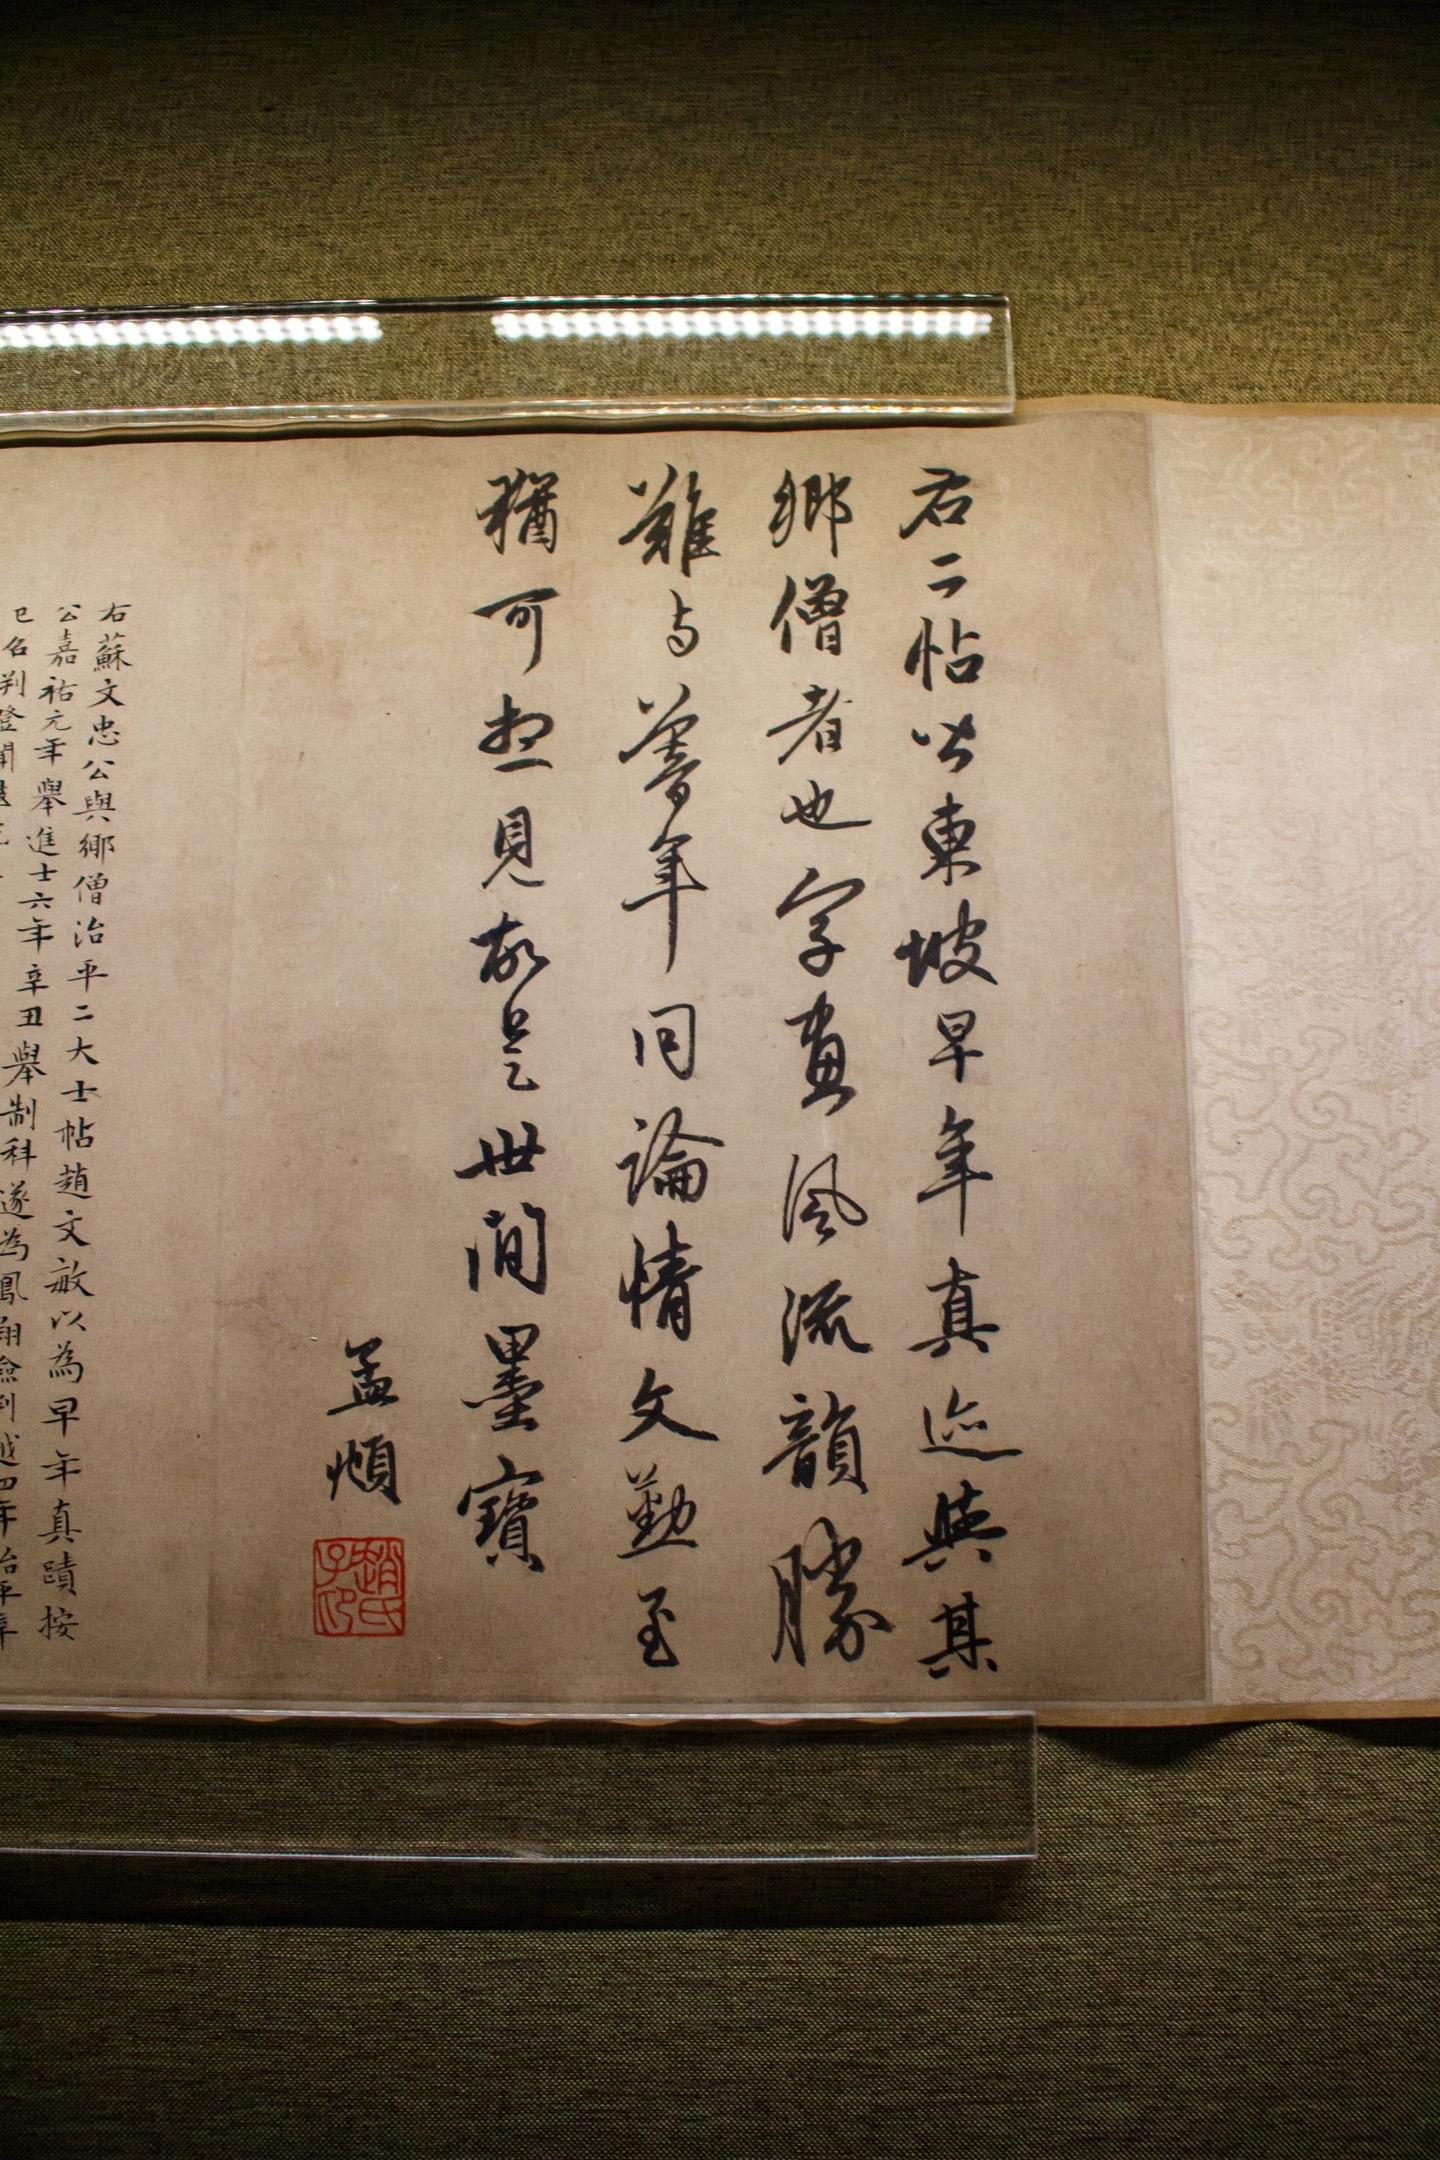 右二帖皆東坡早年真迹與其
鄉僧者也字畫風流韻勝
難与暮年同論情文勤至
猶可想見故是世間墨寶
孟頫
趙氏子昂
右蘇文忠公與鄉僧治平二大士帖趙文敏以為早年真蹟按
公嘉祐元年舉進士六年辛丑舉制科遂為鳳翔僉判越四年治平
巳召判登聞鼓